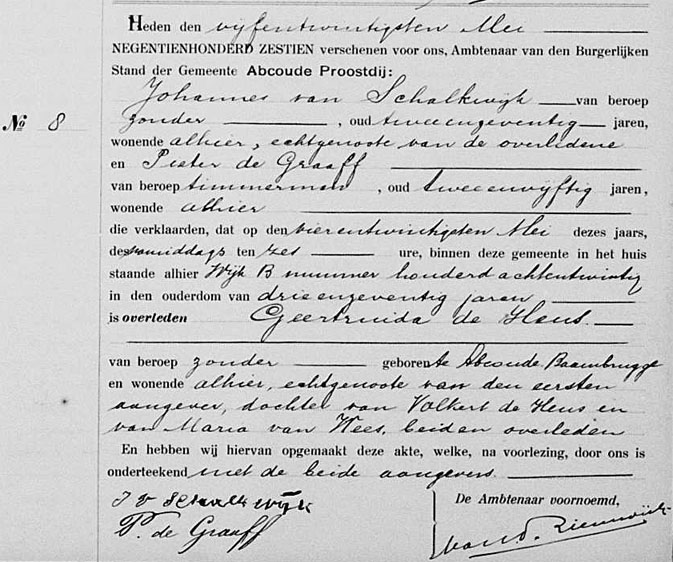 Heden den vijfentwintigsten Mei
NEGENTIENHONDERD ZESTIEN verschenen voor ons, Ambtenaar van den Burgerlijken
Stand der Gemeente Abcoude Proostdij:
Johannes van Schalkwijk van beroep
№ 8 zonder , oud tweeenzeventig jaren,
wonende alhier, echtgenoote van de overledene
en Pieter de Graaff
van beroep timmerman , oud tweeenvijftig jaren,
wonende alhier
die verklaarden, dat op den vierentwintigsten Mei dezes jaars,
des namiddags ten zes ure, binnen deze gemeente in het huis
staande alhier Wijk B nummer honderd achtentwintig
in den ouderdom van drieenzeventig jaren
is overleden Geertruida de Heus
van beroep zonder geboren te Abcoude Baambrugge
en wonende alhier, echtgenoote van den eersten
aangever, dochter van Volkert de Heus en
van Maria van Wees, beiden overleden
En hebben wij hiervan opgemaakt deze akte, welke, na voorlezing, door ons is
onderteekend met de beide aangevers.
J v Schalkwijk De Ambtenaar voornoemd,
P. de Graaff